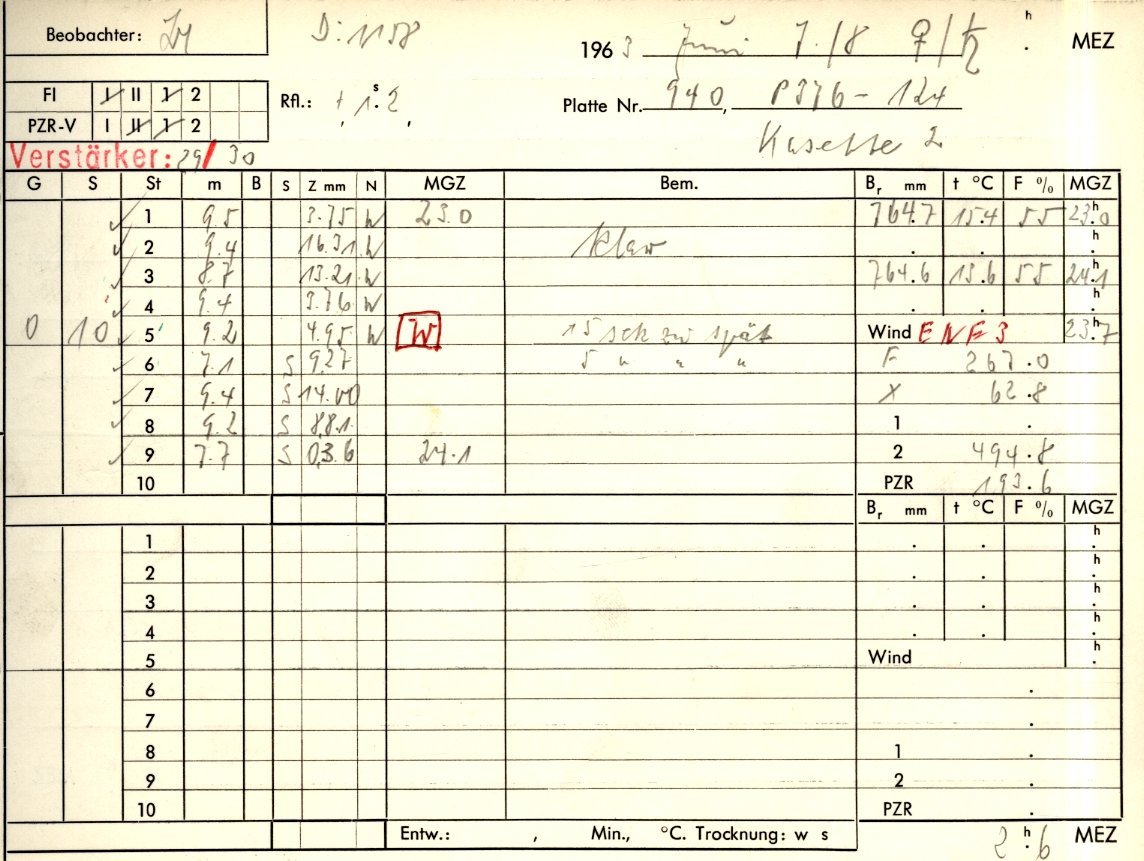 Beobachter: D: 1158 1963 Juni 7./8 ♀/♄ h . MEZ
FI I II 1 2 Rfl.: + 1.2 s Platte Nr. 940, P376-124
PZR-V I II 1 2 Kasette 2
Verstärker: 29/30
G S St m B S Z mm N MGZ Bem. Br mm t °C F % MGZ
1 9.5 3.75 W 23.0 764.7 15.4 55 23.0 h
2 9.4 16.31 W klar . . h .
3 8.7 13.21 W 764.6 13.6 55 24.1 h
4 9.4 3.76 W . . h .
0 10 5 9.2 4.95 W W 15 sek zu spät Wind ENE 3 23.7 h
6 7.1 S 9.27 5 " " " F 267.0
7 9.4 S 14.00 X 62.8
8 9.2 S 8.81 1 .
9 7.7 S 0.36 24.1 2 494.8
10 PZR 193.6
Br mm t °C F % MGZ
1 . . h .
2 . . h .
3 . . h .
4 . . h .
5 Wind h .
6 .
7 .
8 1 .
9 2 .
10 PZR .
Entw.: , Min., °C. Trocknung: w s 2.6 h MEZ